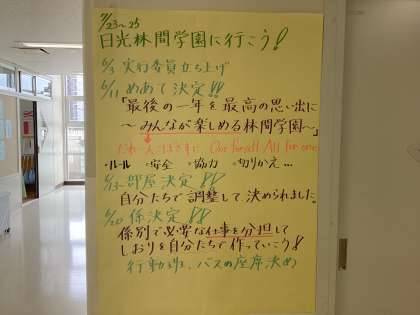 7/23〜25
日光林間学園に行こう!
6/3 実行委員立ち上げ
6/11 めあて決定!!
「最後の一年を最高の思い出に
〜みんなが楽しめる林間学園〜」
だれ一人のこさずに One for all All for one
・ルール ・安全 ・協力 ・切りかえ...
6/13 部屋決定!!
自分たちで調整して決められました。
6/20 係決定!!
係別で必要な仕事を分担して
しおりを自分たちで作っていこう!
行動班、バスの座席決め